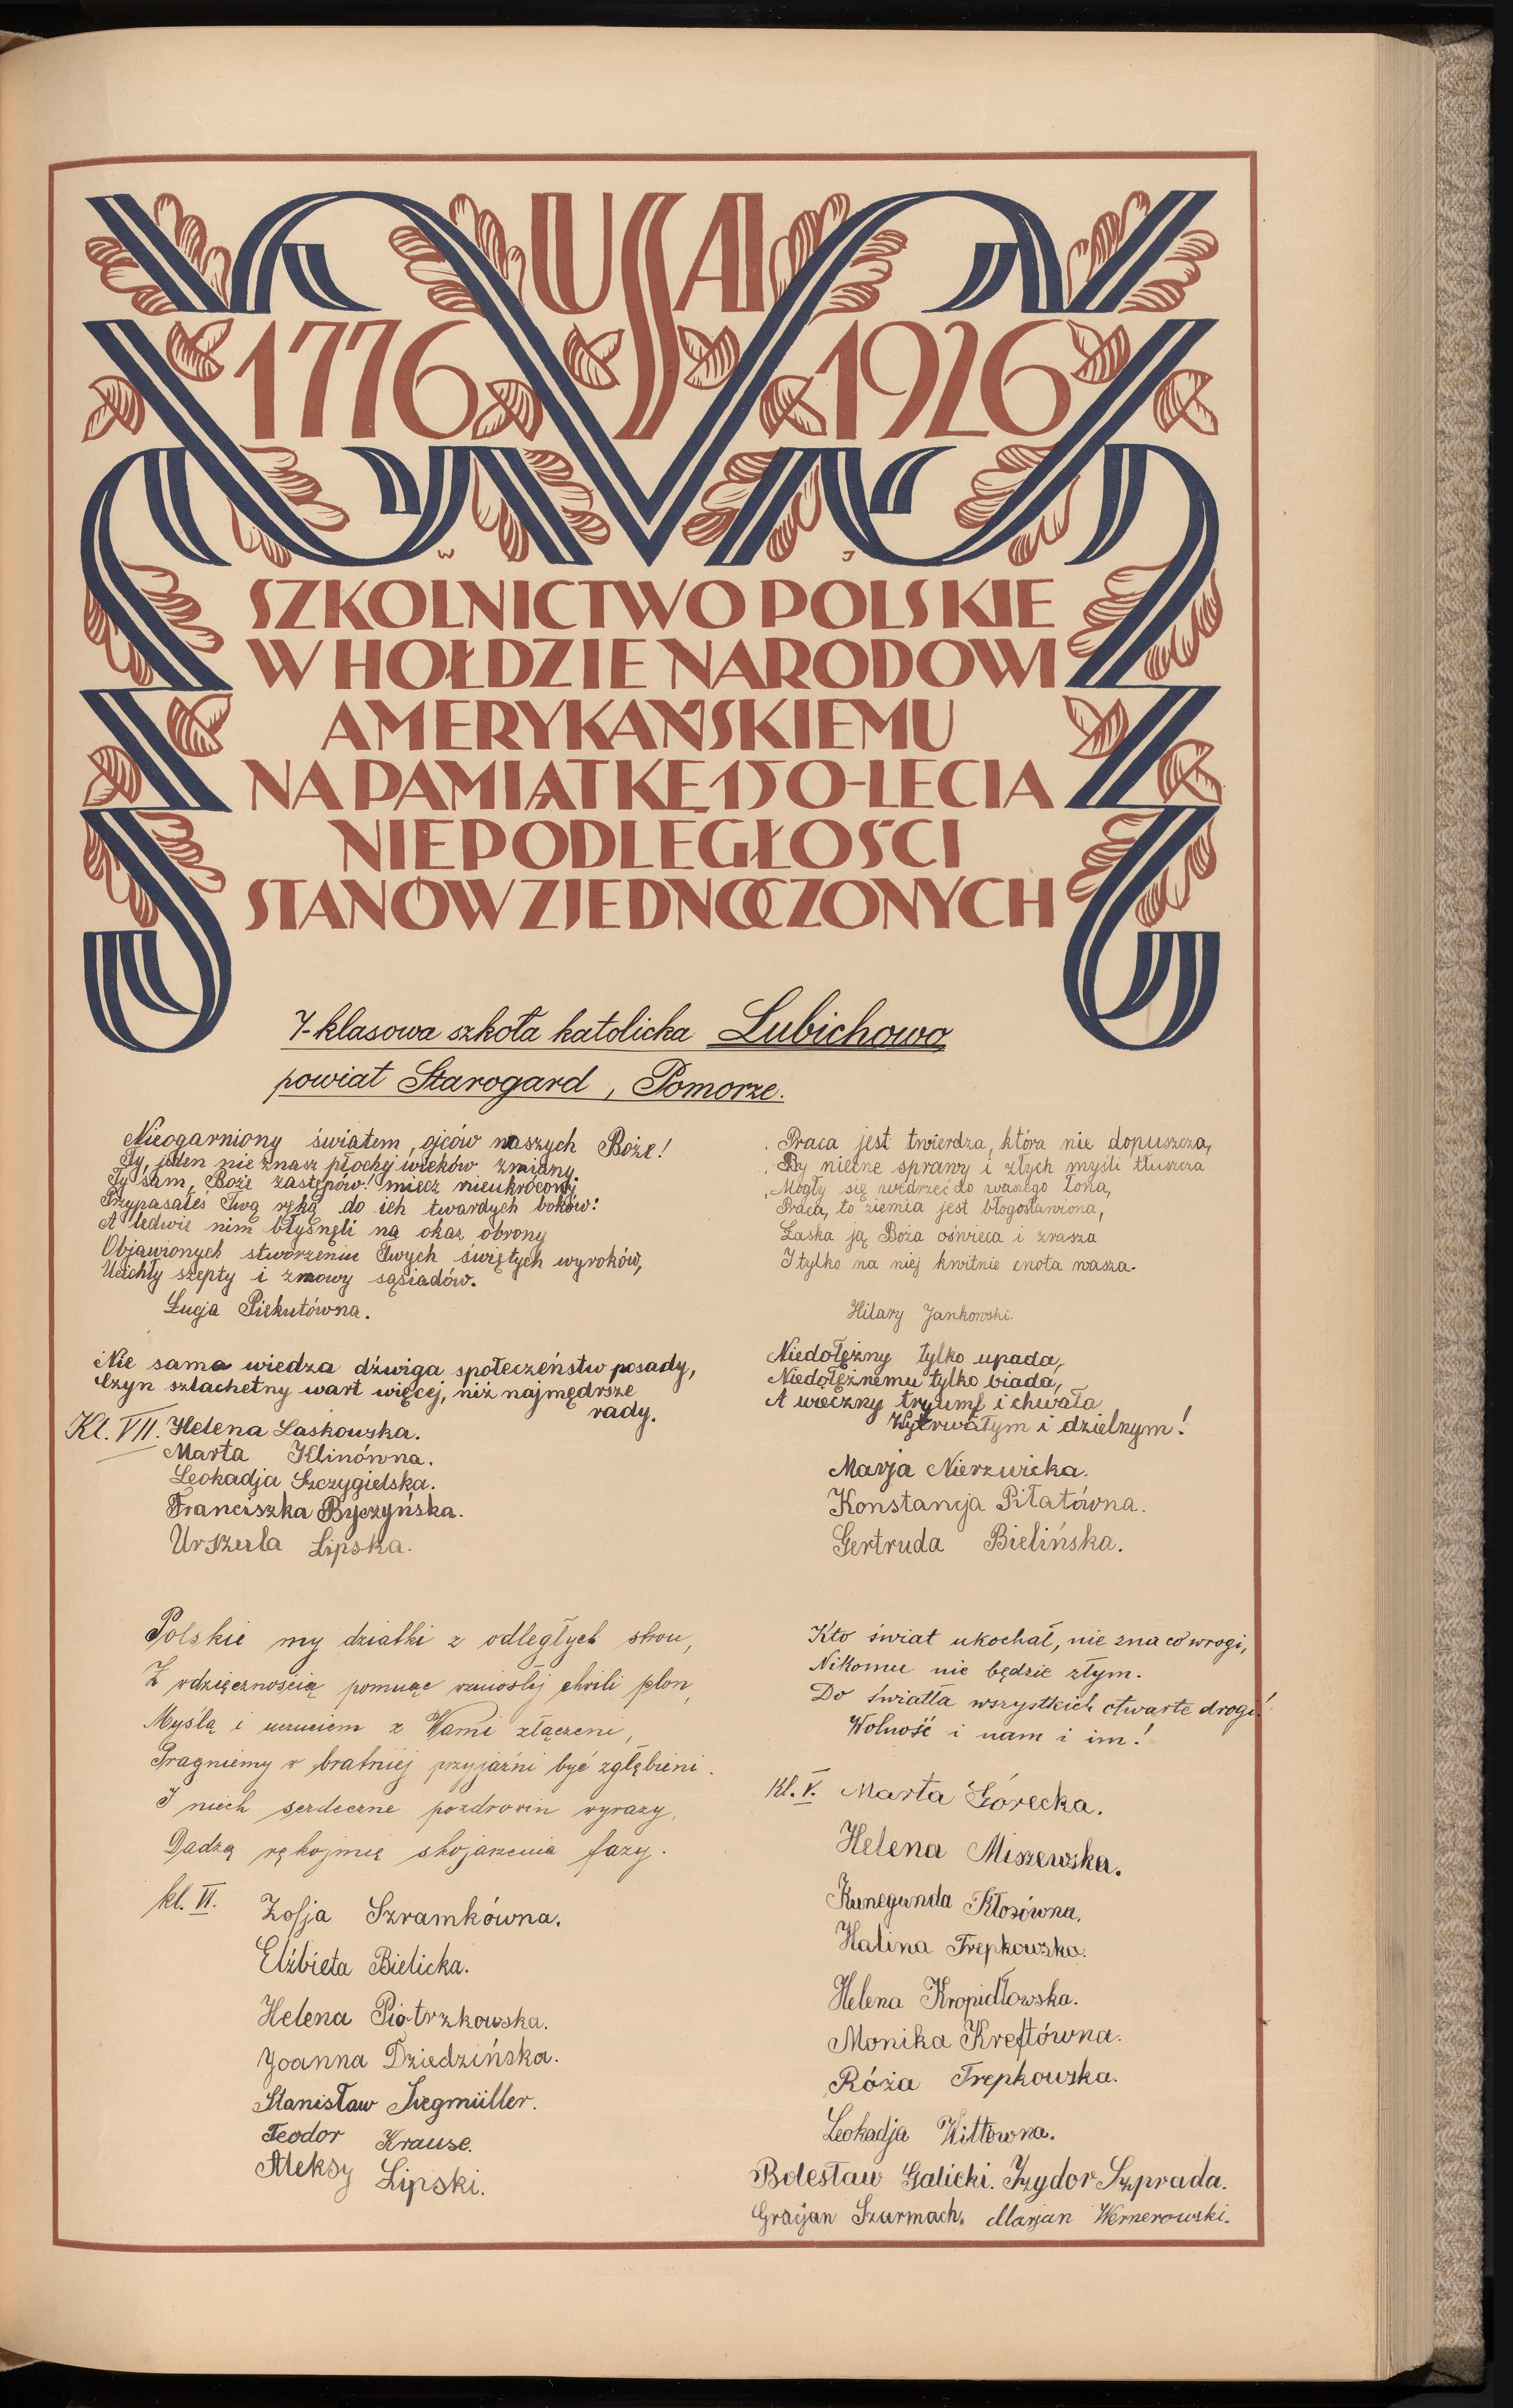 USA
1776 1926
W J
SZKOLNICTWO POLSKIE
W HOŁDZIE NARODOWI
AMERYKAŃSKIEMU
NA PAMIĄTKĘ 150-LECIA
NIEPODLEGŁOŚCI
STANÓW ZJEDNOCZONYCH
7-klasowa szkoła katolicka Lubichowo
powiat Starogard, Pomorze.
Nieogarniony światem, ojców naszych Boże!
Ty, jeden nie znasz płochej wieków zmiany
Ty sam, Boże zastępów! miecz nieukrócony
Przypasałeś Twą ręką do ich twardych boków:
A ledwie nim błysnęli na okaz obrony
Objawionych stworzeniu Twych świętych wyroków,
Ucichły szepty i zmowy sąsiadów.
Łucja Piekutówna.
Nie sama wiedza dźwiga społeczeństw posady,
Czyn szlachetny wart więcej, niż najmędrsze
rady.
Kl. VII. Helena Laskowska.
Marta Klinówna.
Leokadja Szczygielska.
Franciszka Byczyńska.
Urszula Lipska.
Praca jest twierdza, która nie dopuszcza,
By niecne sprawy i złych myśli tłuszcza
Mogły się wedrzeć do waszego łona,
Praca, to ziemia jest błogosławiona,
Łaska ją Boża oświeca i zrasza
I tylko na niej kwitnie cnota wasza.
Hilary Jankowski.
Niedołężny tylko upada,
Niedołężnemu tylko biada,
A wieczny tryumf i chwała
Wytrwałym i dzielnym!
Marja Nierzwicka.
Konstancja Piłatówna.
Gertruda Bielińska.
Polskie my dziatki z odległych stron,
Z wdzięcznością pomnąc wzniosłej chwili plon,
Myślą i uczuciem z Wami złączeni,
Pragniemy w bratniej przyjaźni być zgłębieni.
I niech serdeczne pozdrowin wyrazy,
Dadzą rękojmię skojarzenia fazy.
kl. VI. Zofja Szramkówna.
Elżbieta Bielicka.
Helena Piotrzkowska.
Joanna Dziedzińska.
Stanisław Żegmüller.
Teodor Krause.
Aleksy Lipski.
Kto świat ukochał, nie zna co wrogi,
Nikomu nie będzie złym.
Do światła wszystkich otwarte drogi!
Wolność i nam i im!
Kl. V. Marta Górecka.
Helena Miszewska.
Kunegunda Kłosówna.
Halina Trepkowska.
Helena Kropidłowska.
Monika Kreftówna.
Róża Trepkowska.
Leokadja Wittówna.
Bolesław Galicki. Izydor Szprada.
Gracjan Szarmach. Marjan Wernerowski.